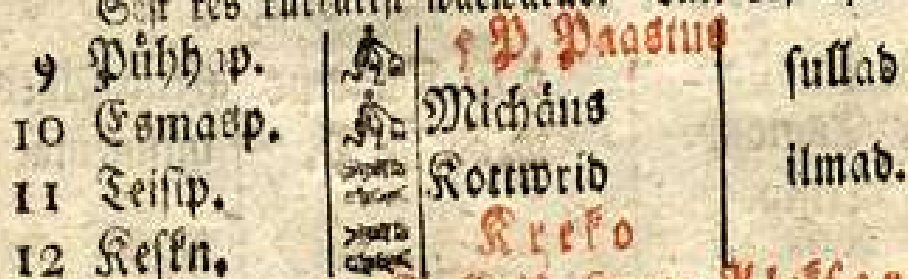 9 Pühhap. P, Paastus sullad
10 Esmasp. Michäus
ilmad.
11 Teisip. Kottwrid
12 Keskn. Kreko